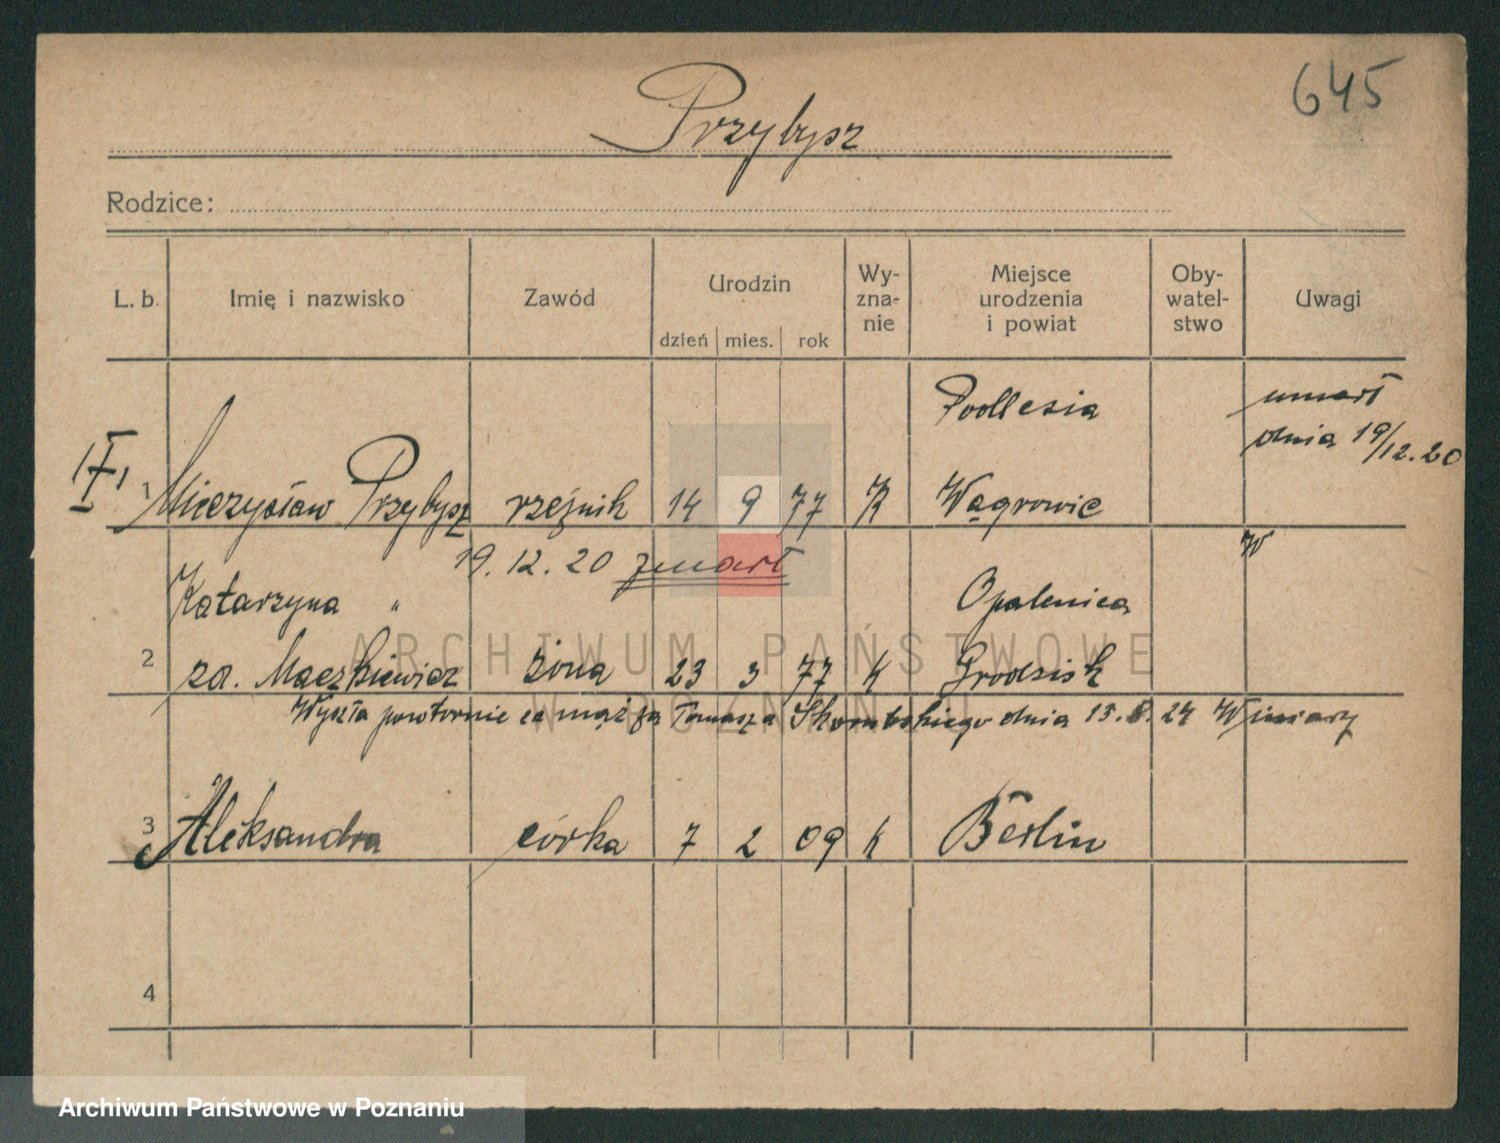 645
Przybysz
Rodzice:
L. b. Imię i nazwisko Zawód Urodzin dzień mies. rok Wy-zna-nie Miejsce urodzenia i powiat Oby-watel-stwo Uwagi
Podlesia umarł
dnia 19/12.20
1 Mieczysław Przybysz rzeźnik 14 9 77 K Wągrowic
19.12.20 zmarł
Katarzyna " Opalenica
2 zd. Maczkiewicz żona 23 3 77 K Grodzisk
Wyszła powtórnie za mąż za Tomasza dnia 15.8.24 Winiary
3 Aleksandra córka 7 2 09 K Berlin
4
ARCHIWUM PAŃSTWOWE
W POZNANIU
Archiwum Państwowe w Poznaniu